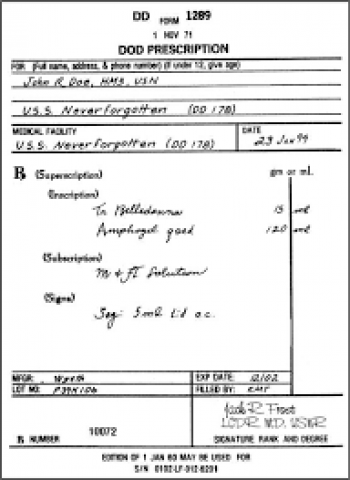 DD FORM 1289
1 NOV 71
DOD PRESCRIPTION
FOR: (Full name, address, & phone number) (If under 12, give age)
John R. Doe, HM3, USN
U.S.S. Neverforgotten (DD 178)
MEDICAL FACILITY
U.S.S. Neverforgotten (DD 178)
DATE
23 Jan 99
℞ (Superscription)
gm or ml.
(Inscription)
Tr Belladonna 15 ml
Amphogel qsad 120 ml
(Subscription)
M & Ft Solution
(Signa)
Sig: 5 ml tid a.c.
MFGR: Wyeth
EXP DATE: 12/02
LOT NO: P39K106
FILLED BY: KMT
Jack R. Frost
LCDR, MD, USNR
℞ NUMBER 10072
SIGNATURE RANK AND DEGREE
EDITION OF 1 JAN 60 MAY BE USED FOR
S/N 0102-LF-012-6201